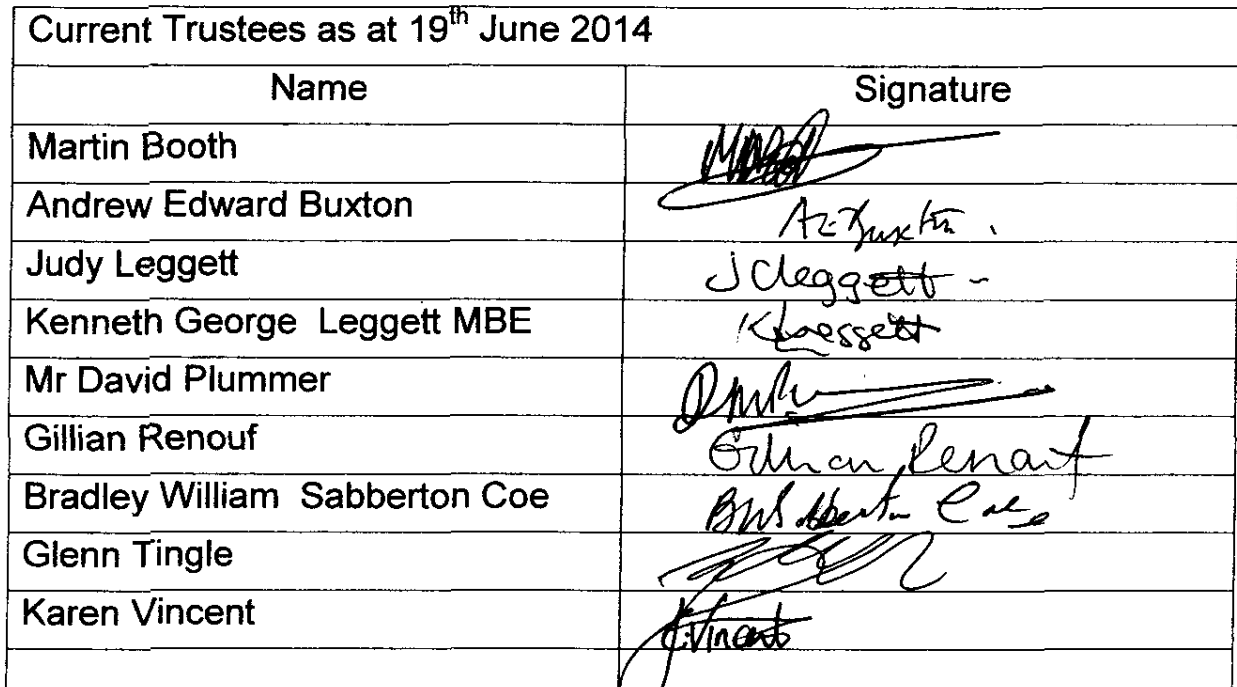 Current Trustees as at 19th June 2014
Name Signature
Martin Booth
Andrew Edward Buxton AEBuxton.
Judy Leggett JCLeggett -
Kenneth George Leggett MBE KLeggett
Mr David Plummer
Gillian Renouf Gillian Renouf
Bradley William Sabberton Coe BWSabberton Coe
Glenn Tingle
Karen Vincent K.Vincent